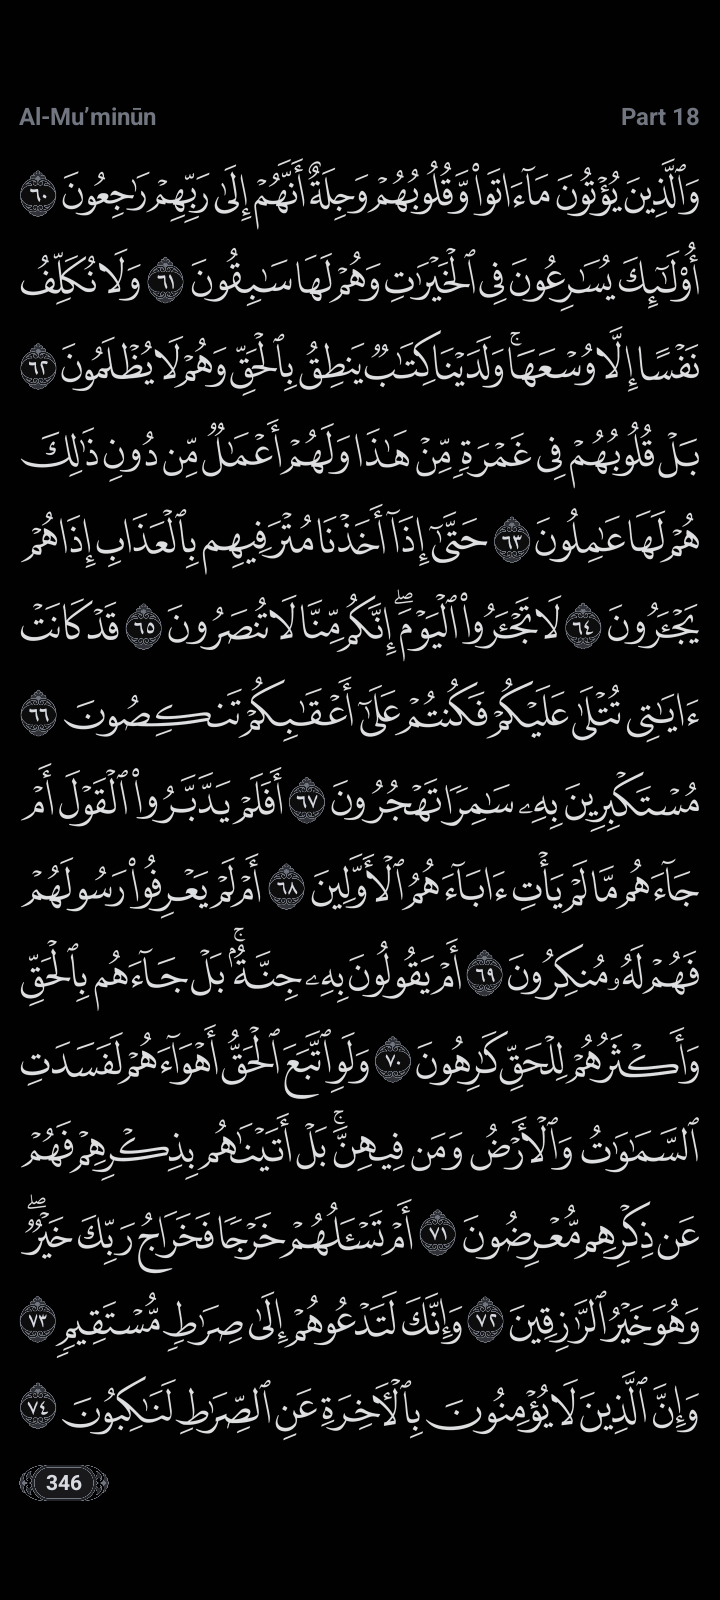 Al-Mu’minūn Part 18
وَٱلَّذِينَ يُؤۡتُونَ مَآ ءَاتَواْ وَّقُلُوبُهُمۡ وَجِلَةٌ أَنَّهُمۡ إِلَىٰ رَبِّهِمۡ رَٰجِعُونَ ٦٠
أُوْلَـٰٓئِكَ يُسَٰرِعُونَ فِي ٱلۡخَيۡرَٰتِ وَهُمۡ لَهَا سَٰبِقُونَ ٦١ وَلَا نُكَلِّفُ
نَفۡسًا إِلَّا وُسۡعَهَاۚ وَلَدَيۡنَا كِتَٰبٞ يَنطِقُ بِٱلۡحَقِّ وَهُمۡ لَا يُظۡلَمُونَ ٦٢
بَلۡ قُلُوبُهُمۡ فِي غَمۡرَةٖ مِّنۡ هَٰذَا وَلَهُمۡ أَعۡمَٰلٞ مِّن دُونِ ذَٰلِكَ
هُمۡ لَهَا عَٰمِلُونَ ٦٣ حَتَّىٰٓ إِذَآ أَخَذۡنَا مُتۡرَفِيهِم بِٱلۡعَذَابِ إِذَا هُمۡ
يَجۡـَٔرُونَ ٦٤ لَا تَجۡـَٔرُواْ ٱلۡيَوۡمَۖ إِنَّكُم مِّنَّا لَا تُنصَرُونَ ٦٥ قَدۡ كَانَتۡ
ءَايَٰتِي تُتۡلَىٰ عَلَيۡكُمۡ فَكُنتُمۡ عَلَىٰٓ أَعۡقَٰبِكُمۡ تَنكِصُونَ ٦٦
مُسۡتَكۡبِرِينَ بِهِۦ سَٰمِرٗا تَهۡجُرُونَ ٦٧ أَفَلَمۡ يَدَّبَّرُواْ ٱلۡقَوۡلَ أَمۡ
جَآءَهُم مَّا لَمۡ يَأۡتِ ءَابَآءَهُمُ ٱلۡأَوَّلِينَ ٦٨ أَمۡ لَمۡ يَعۡرِفُواْ رَسُولَهُمۡ
فَهُمۡ لَهُۥ مُنكِرُونَ ٦٩ أَمۡ يَقُولُونَ بِهِۦ جِنَّةُۢۚ بَلۡ جَآءَهُم بِٱلۡحَقِّ
وَأَكۡثَرُهُمۡ لِلۡحَقِّ كَٰرِهُونَ ٧٠ وَلَوِ ٱتَّبَعَ ٱلۡحَقُّ أَهۡوَآءَهُمۡ لَفَسَدَتِ
ٱلسَّمَٰوَٰتُ وَٱلۡأَرۡضُ وَمَن فِيهِنَّۚ بَلۡ أَتَيۡنَٰهُم بِذِكۡرِهِمۡ فَهُمۡ
عَن ذِكۡرِهِم مُّعۡرِضُونَ ٧١ أَمۡ تَسۡـَٔلُهُمۡ خَرۡجٗا فَخَرَاجُ رَبِّكَ خَيۡرٞۖ
وَهُوَ خَيۡرُ ٱلرَّٰزِقِينَ ٧٢ وَإِنَّكَ لَتَدۡعُوهُمۡ إِلَىٰ صِرَٰطٖ مُّسۡتَقِيمٖ ٧٣
وَإِنَّ ٱلَّذِينَ لَا يُؤۡمِنُونَ بِٱلۡأٓخِرَةِ عَنِ ٱلصِّرَٰطِ لَنَٰكِبُونَ ٧٤
346